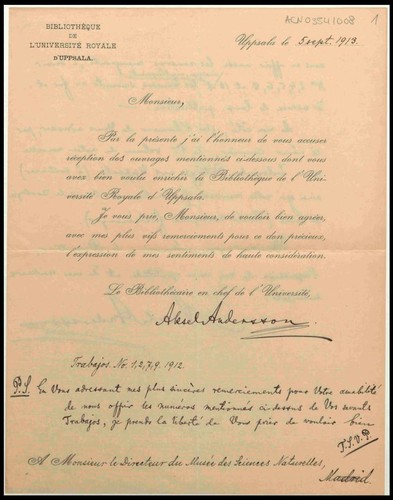 BIBLIOTHÈQUE
DE
L'UNIVERSITÉ ROYALE
D'UPPSALA.
ACN03541008
1
Uppsala le 5 sept. 1913.
Monsieur,
Par la présente j'ai l'honneur de vous accuser
réception des ouvrages mentionnés ci-dessous dont vous
avez bien voulu enrichir la Bibliothèque de l'Uni-
versité Royale d'Uppsala.
Je vous prie, Monsieur, de vouloir bien agréer,
avec mes plus vifs remerciements pour ce don précieux,
l'expression de mes sentiments de haute considération.
Le Bibliothécaire en chef de l'Université,
Aksel Andersson.
Trabajos. Nr. 1, 2, 7, 9. 1912.
P.S. En Vous adressant mes plus sincères remerciements pour Votre amabilité
de nous offrir les numéros mentionnés ci-dessous de Vos savants
Trabajos, je prends la liberté de Vous prier de vouloir bien
T.S.V.P.
A Monsieur le Directeur du Musée des Sciences Naturelles,
Madrid.